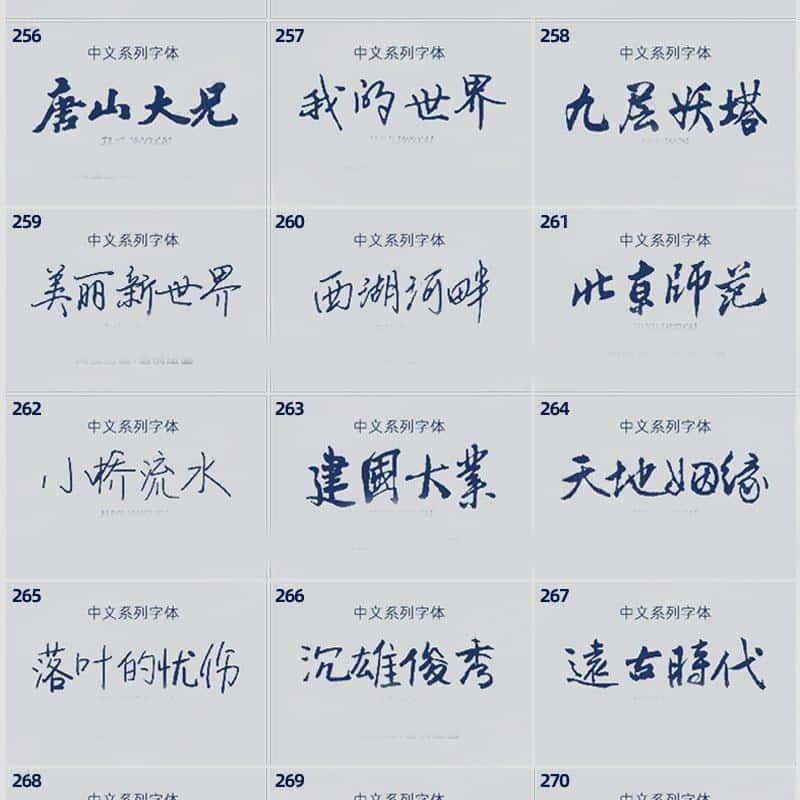 256
中文系列字体
唐山大兄
257
中文系列字体
我的世界
258
中文系列字体
九层妖塔
259
中文系列字体
美丽新世界
260
中文系列字体
西湖河畔
261
中文系列字体
北京師范
262
中文系列字体
小桥流水
263
中文系列字体
建國大業
264
中文系列字体
天地姻缘
265
中文系列字体
落叶的忧伤
266
中文系列字体
沉雄俊秀
267
中文系列字体
遠古時代
268
中文系列字体
269
中文系列字体
270
中文系列字体